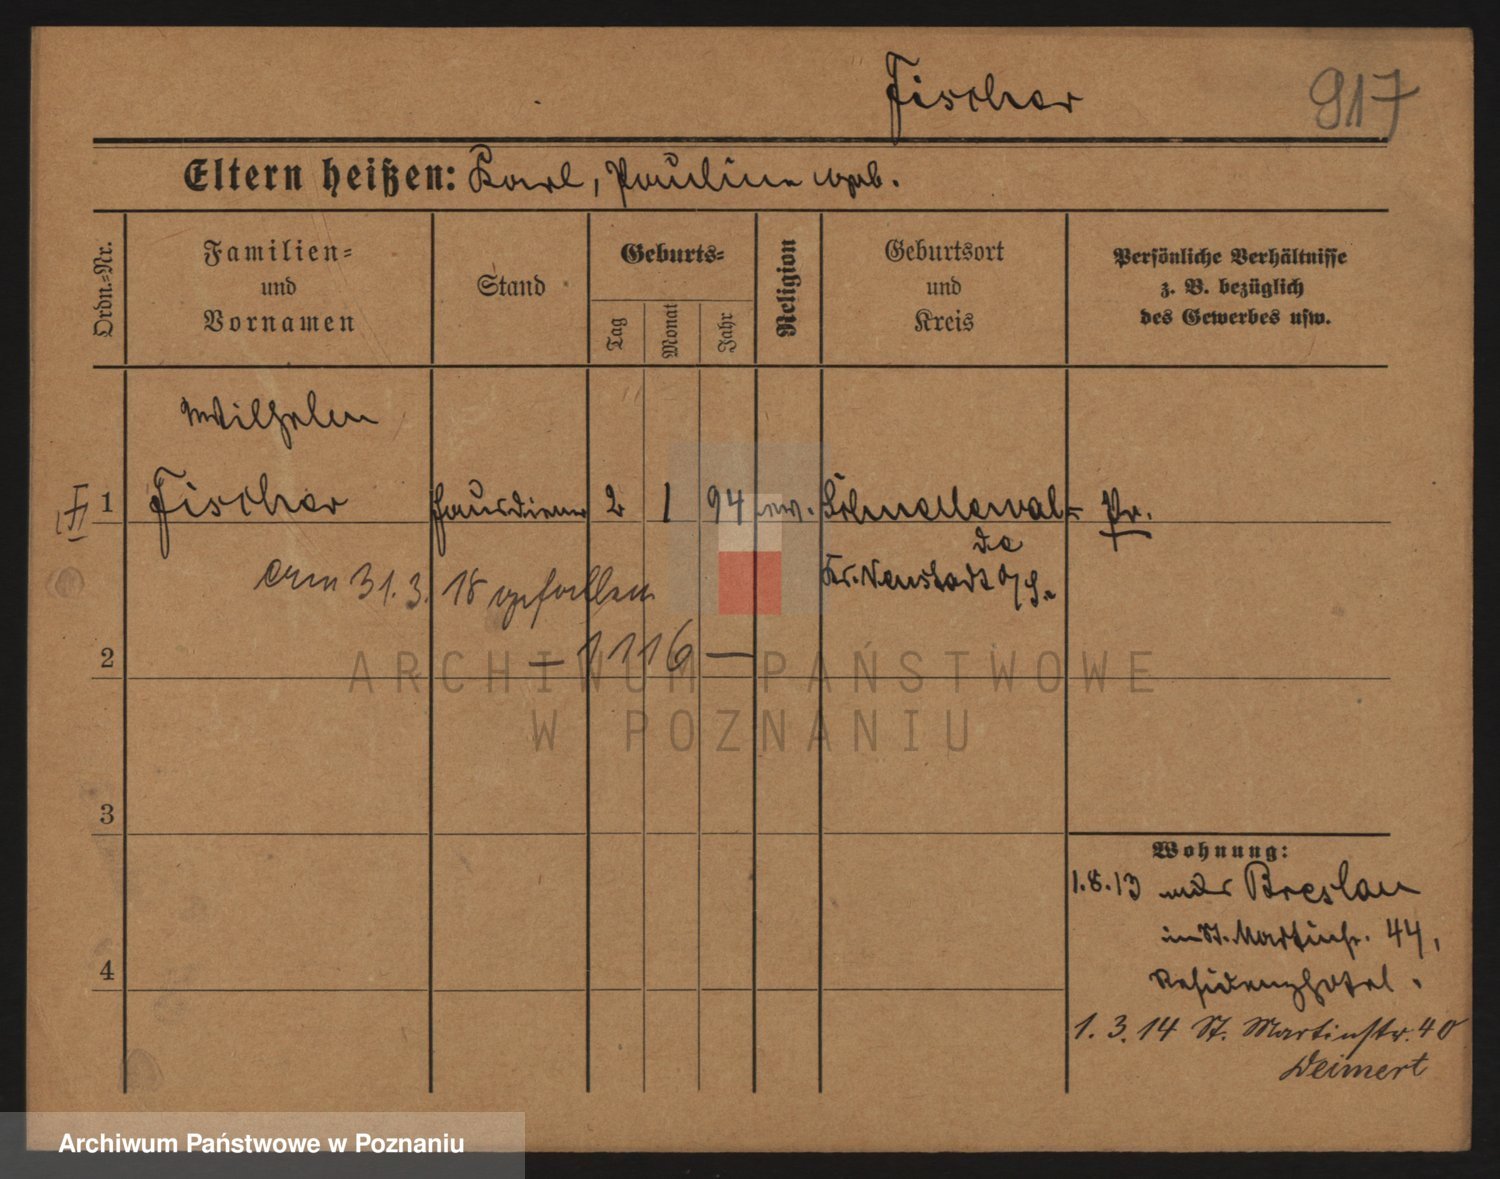 Fischer 917
Eltern heißen: Karl, Pauline geb.
Ordn.=Nr.
Familien=
und
Vornamen
Stand
Geburts=
Tag
Monat
Jahr
Religion
Geburtsort
und
Kreis
Persönliche Verhältnisse
z. B. bezüglich
des Gewerbes usw.
Wilhelm
1 Fischer Hausdiener 2 1 94 ev. Schmellewal= Pr.
de
Kr. Neustadt O/S.
am 31.3.18 gefallen
— 1116 —
2
3
4
Wohnung:
1.8.13 Breslau
St. Martinstr. 44,
Residenzhotel.
1.3.14 St. Martinstr. 40
Deimert
ARCHIWUM PAŃSTWOWE
W POZNANIU
Archiwum Państwowe w Poznaniu